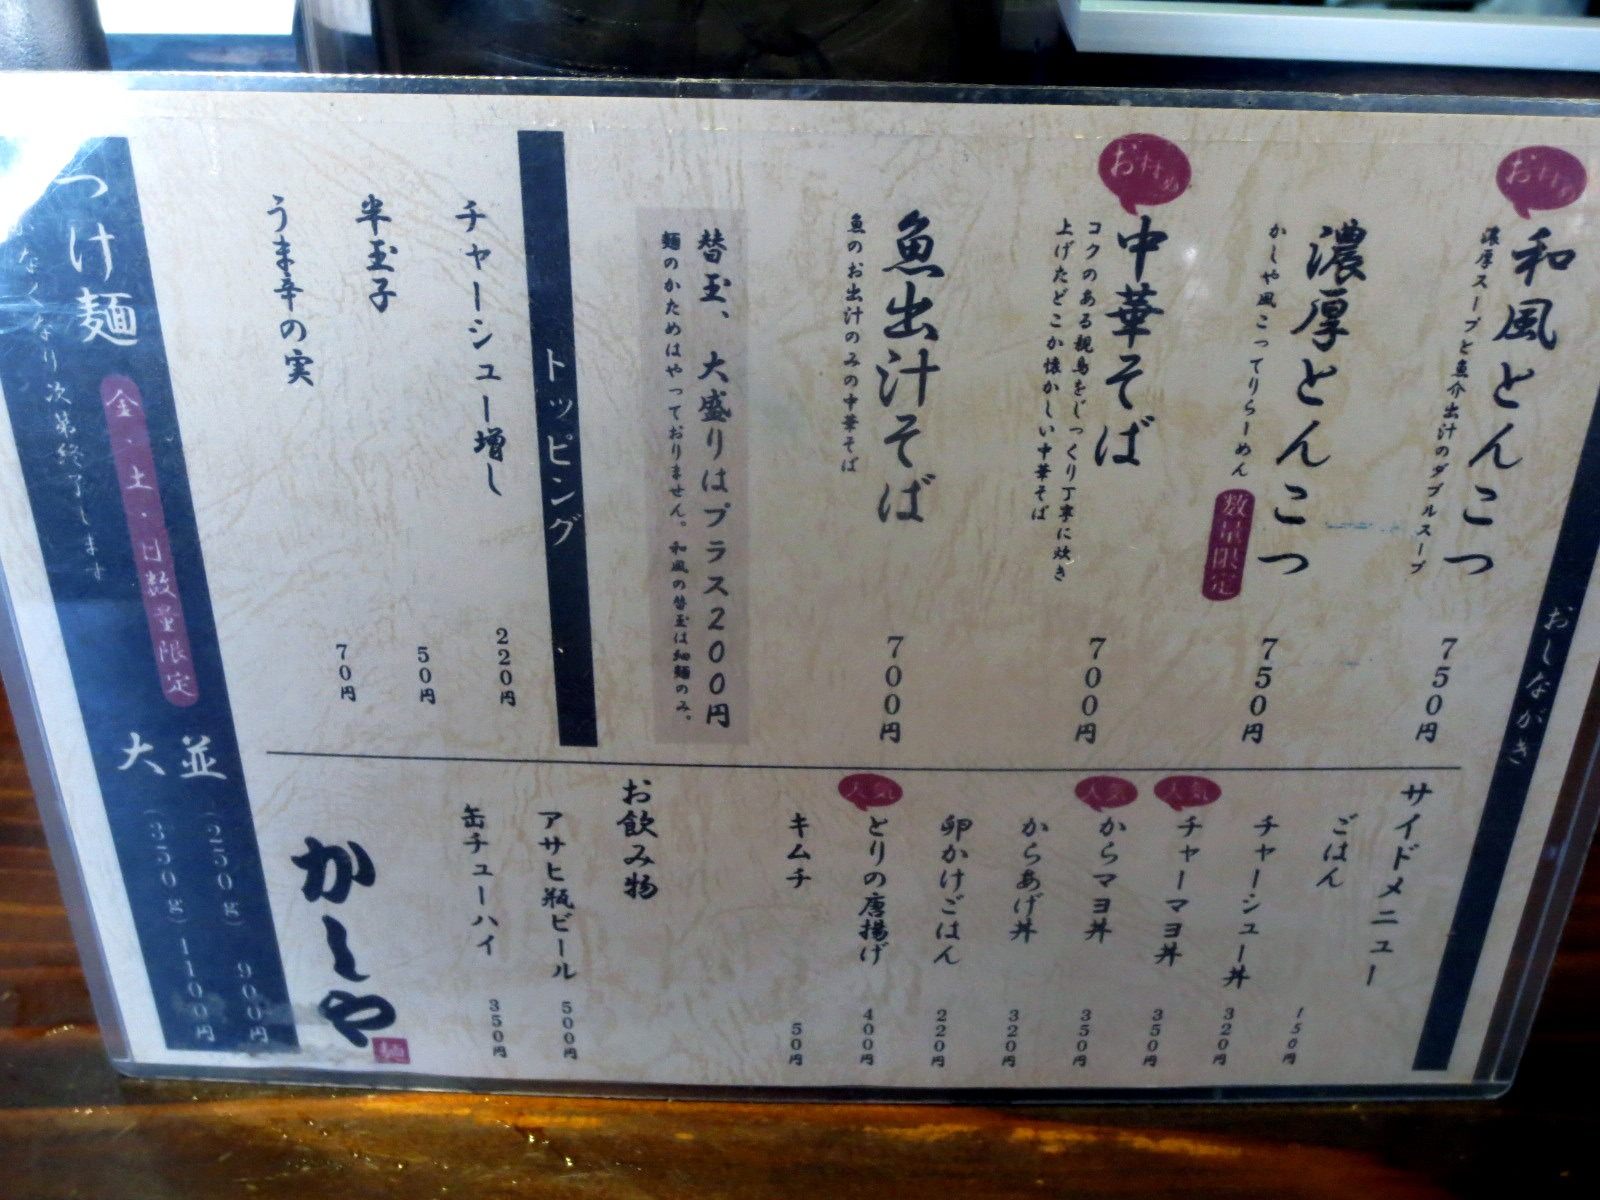 おしながき
おすすめ
和風とんこつ
濃厚スープと魚介出汁のダブルスープ
750円
濃厚とんこつ
かしや風こってりらーめん
数量限定
750円
おすすめ
中華そば
コクのある親鳥をじっくり丁寧に炊き
上げたどこか懐かしい中華そば
700円
魚出汁そば
魚のお出汁のみの中華そば
700円
替玉、大盛りはプラス200円
麺のかためはやっておりません。和風の替玉は細麺のみ。
トッピング
チャーシュー増し 220円
半玉子 50円
うま辛の実 70円
サイドメニュー
ごはん 150円
チャーシュー丼 320円
人気
チャーマヨ丼 350円
人気
からマヨ丼 350円
からあげ丼 320円
卵かけごはん 220円
人気
とりの唐揚げ 400円
キムチ 50円
お飲み物
アサヒ瓶ビール 500円
缶チューハイ 350円
かしや
麺
つけ麺 金・土・日数量限定 並(250g) 900円
大(350g) 1100円
なくなり次第終了します